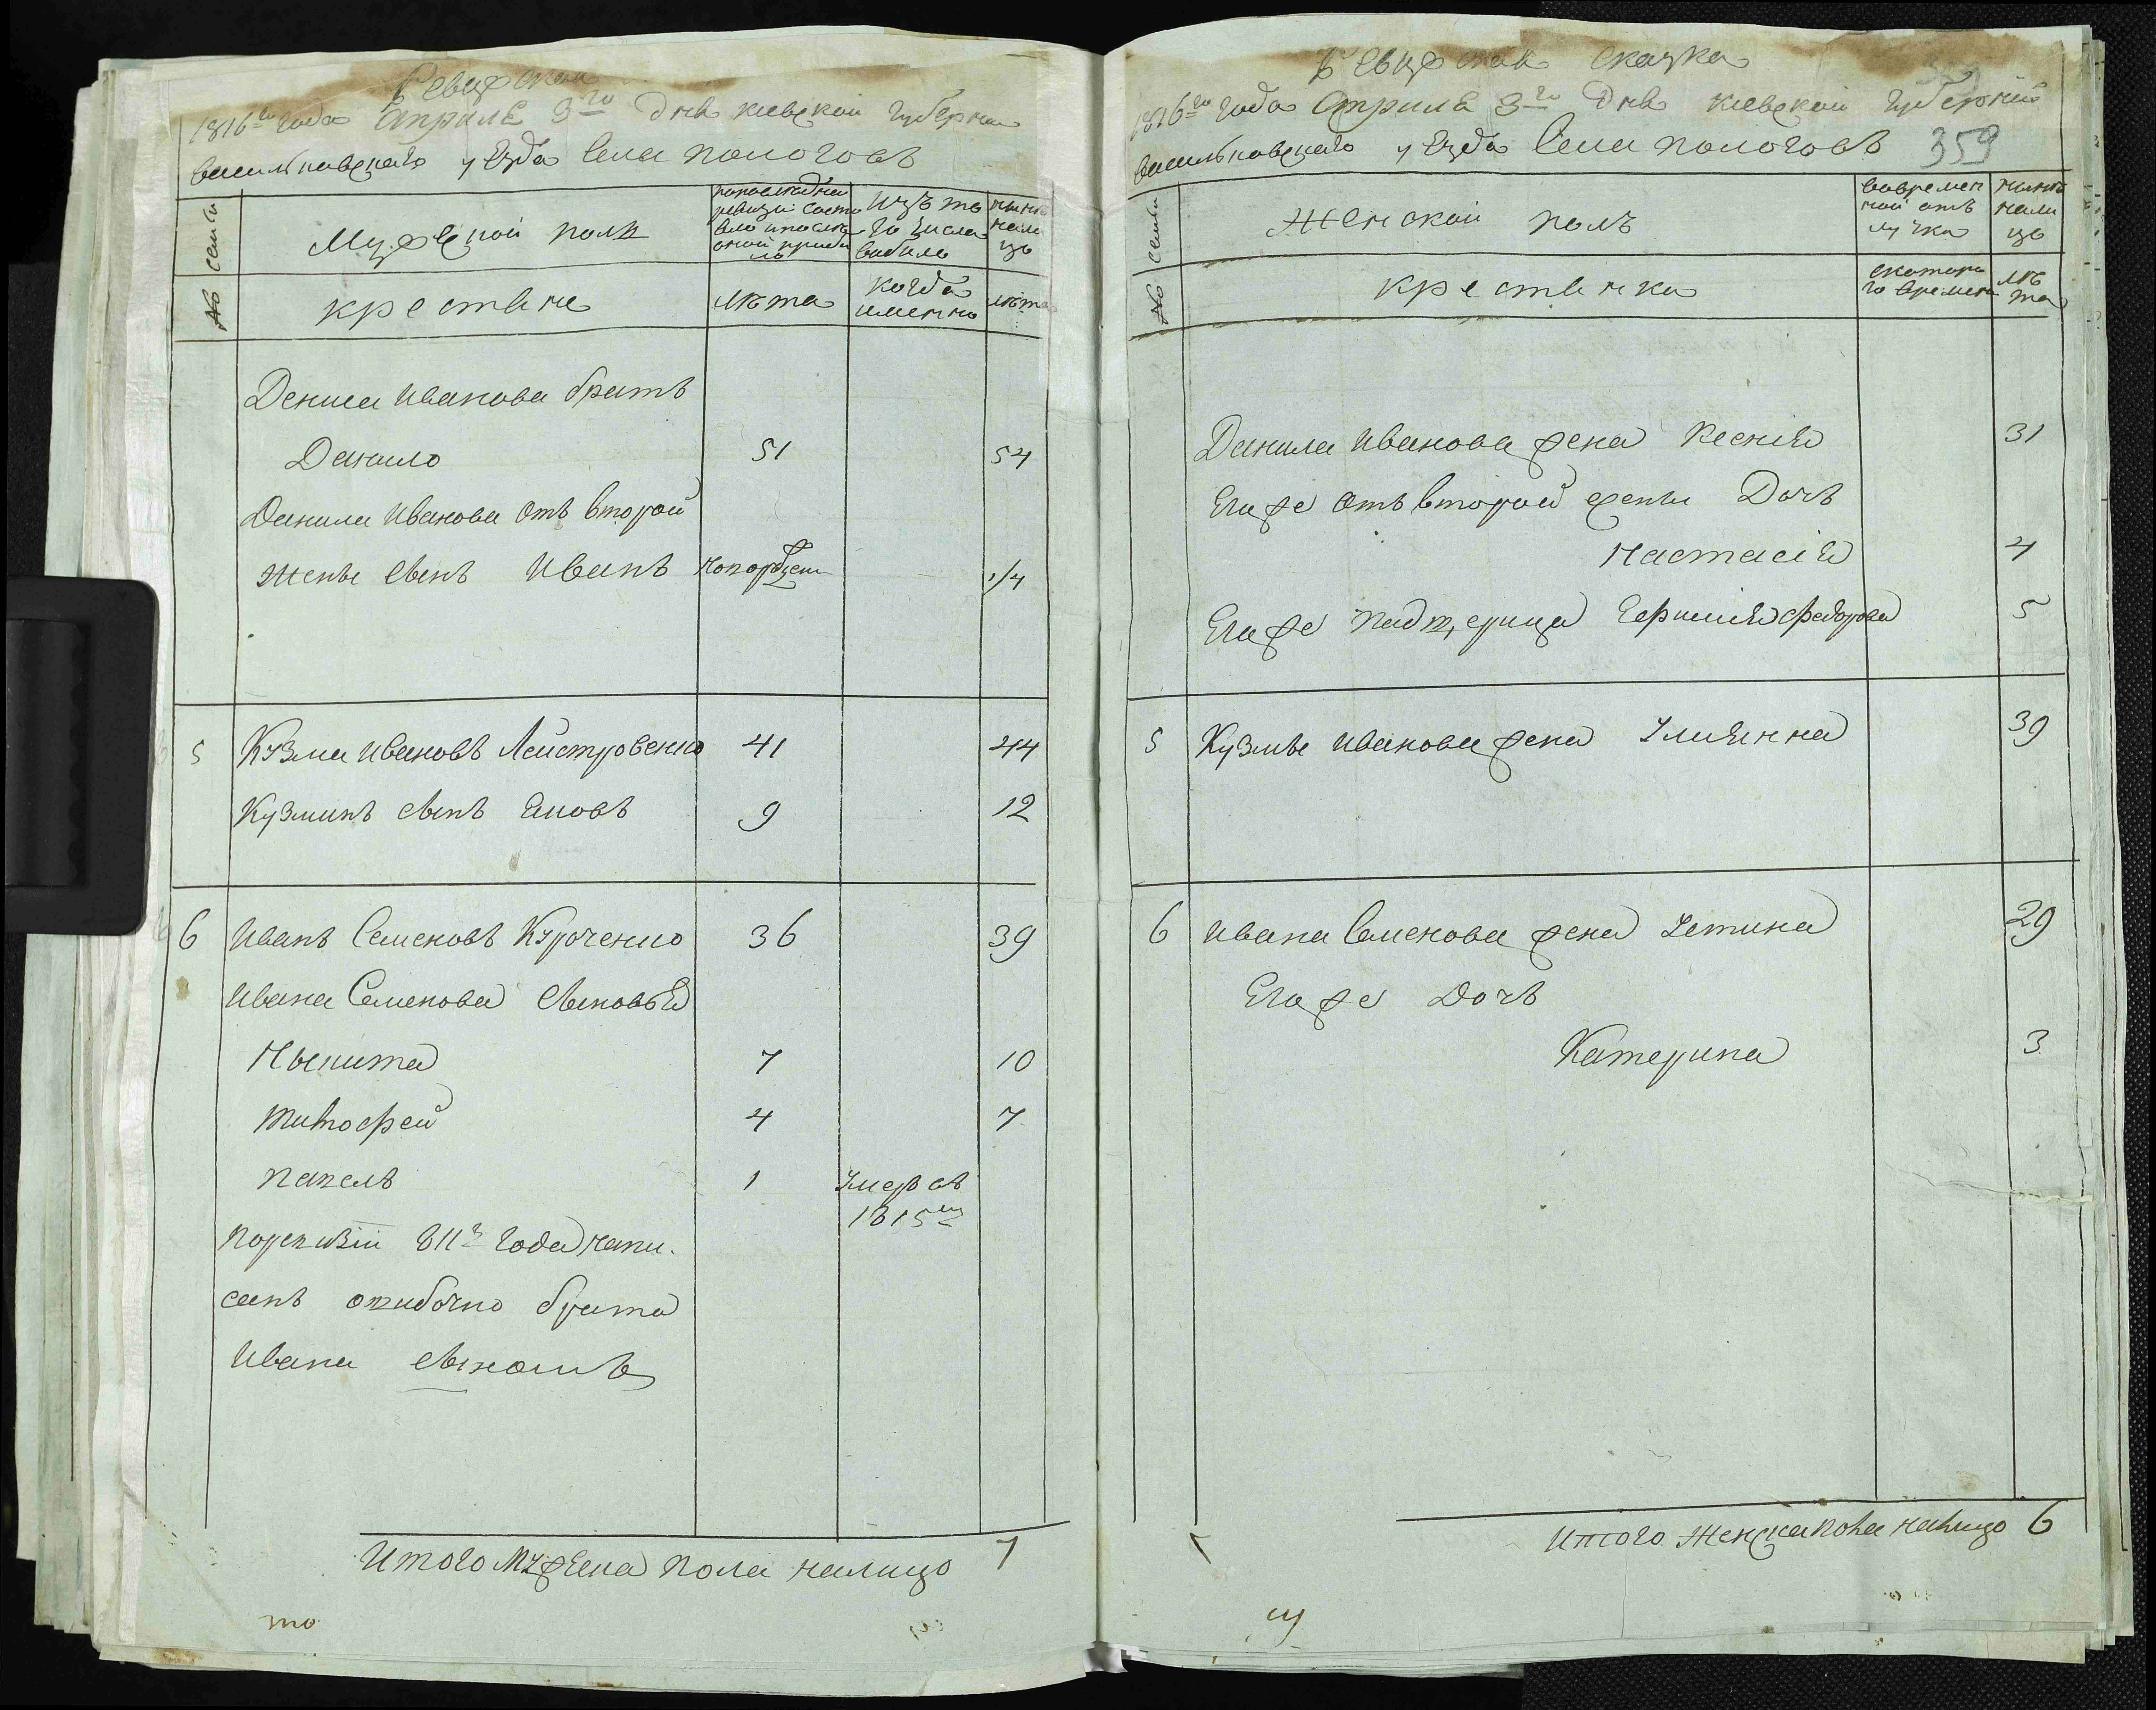 Ревижская
1816го года Априля 3го дня киевской губернии
васильковскаго уезда Села пологовъ
№ семьи
Мужеской полъ
попоследней ревизии состояло и после оной прибыло
Изъ того числа выбыло
ныне налицо
крестьяне
лѣта
когда именно
лѣта
Дениса Иванова братъ
Данило 51 54
Данила Иванова отъ второй
жены сынъ Иванъ новорожден 1/4
5 Кузма Ивановъ Лейстровенко 41 44
Кузминъ сынъ Яковъ 9 12
6 Иванъ Семеновъ Курченко 36 39
Ивана Семенова сыновья
Никита 7 10
тимофей 4 7
павелъ 1 Умеръ въ 1815м
поревизии 811г года напи.
санъ ошибочно брата
Ивана сыномъ
Итого Мужеска пола налицо 7
то
Ревижская сказка
1816го года Априля 3го дня киевской губернии
васильковскаго уезда Села пологовъ 359
№ семьи
Женской полъ
вовремен ной отлучке
ныне налицо
крестьянки
скотора го времени
лѣта
Данила Иванова жена Ксенія 31
Его же отъ второй жены Дочь
Настасія 4
Его же падщерица Ефимия федорова 5
5 Кузмы Иванова жена Улиянна 39
6 Ивана Семенова жена Устина 29
Его же дочь
Катерина 3
Итого женска пола налицо 6